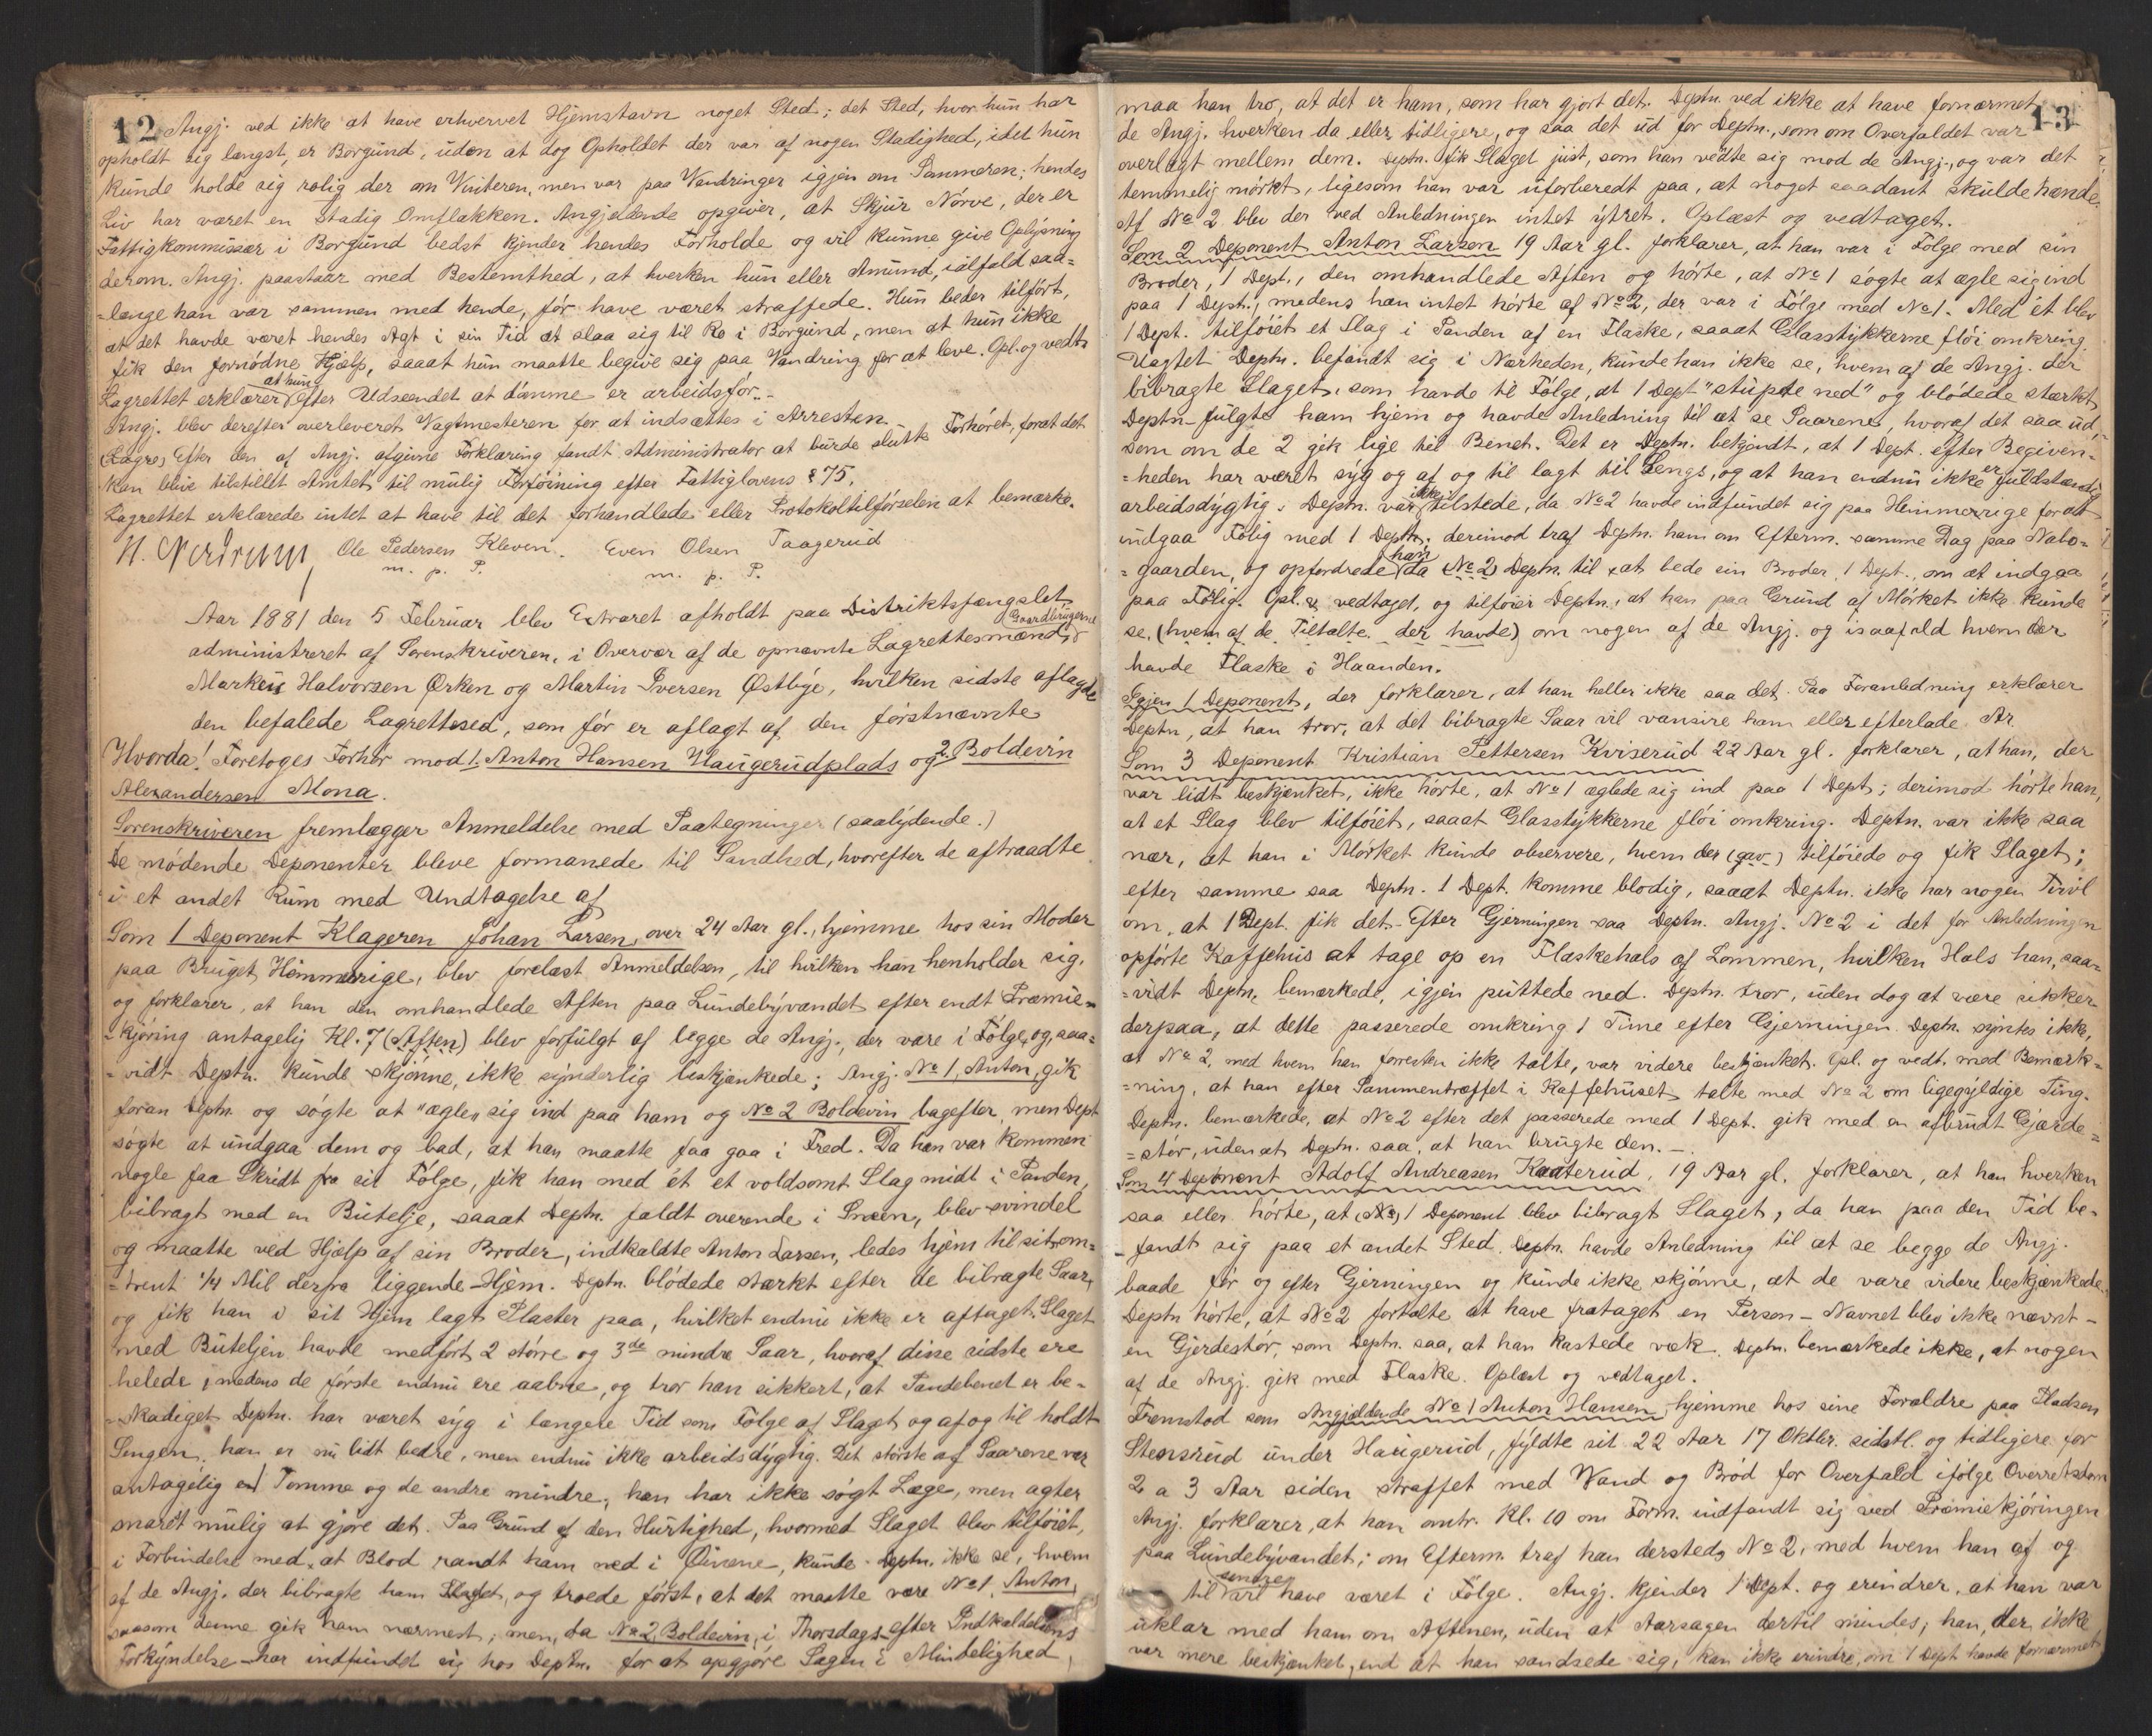 12
Angj. ved ikke at have erhvervet Hjemstavn noget Sted; det Sted, hvor hun har
opholdt sig længst, er Borgund, uden at dog Opholdet der var af nogen Stadighed, idet hun
kunde holde sig rolig der om Vinteren, men var paa Vandringer igjen om Sommeren; hendes
Liv har været en stadig Omflakken. Angjældende opgiver, at Skjur Nörve, der er
Fattigkommissær i Borgund bedst kjender hendes Forholde og vil kunne give Oplysning
derom. Angj. paastaar med Bestemthed, at hverken hun eller Amund, ialfald saa=
=længe han var sammen med hende, før have været straffede. Hun beder tilført,
at det havde været hendes Agt i sin Tid at slaa sig til Ro i Borgund, men at hun ikke
fik den fornödne Hjælp, saaat hun maatte begive sig paa Vandring for at leve. Opl. og vedt.
Lagrettet erklærer at hun efter Udseendet at dömme er arbeidsför. -
Angj. blev derefter overleveret Vagtmesteren for at indsættes i Arresten.
(Lagre) Efter den af Angj. afgivne Forklæring fandt Administrator at burde slutte Forhöret, forat det
kan blive tilstillet Amtet til mulig Forföining efter Fattiglovens § 75.
Lagrettet erklærede intet at have til det forhandlede eller Protokoltilförselen at bemærke.
N. Nerdrum, Ole Pedersen Kleven. Even Olsen Taagerud
m. p. P. m. p. P.
Aar 1881 den 5 Februar blev Extraret afholdt paa Distriktsfængslet
administreret af Sorenskriveren, i Overvær af de opnævnte Lagrettesmænd, Gaardbrugerne
Markus Halvorsen Ørken og Martin Iversen Østbye, hvilken sidste aflagde
den befalede Lagrettesed, som för er aflagt af den förstnævnte
Hvorda! Foretoges Forhör mod 1. Anton Hansen Haugerudplads og 2. Boldevin
Alexandersen Mona.
Sorenskriveren fremlægger Anmeldelse med Paategninger (saalydende.)
De mödende Deponenter bleve formanede til Sandhed, hvorefter de aftraadte
i et andet Rum med Undtagelse af
Som 1 Deponent Klageren Johan Larsen, over 24 Aar gl., hjemme hos sin Moder
paa Bruget Himmerige, blev forelæst Anmeldelsen, til hvilken han henholder sig,
og forklarer, at han den omhandlede Aften paa Lundebyvandet efter endt Præmie=
=kjöring antagelig Kl. 7 (Aften) blev forfulgt af begge de Angj., der vare i Fölge, og, saa=
=vidt Deptn. kunde skjönne, ikke synderlig beskjænkede; Angj. No 1, Anton, gik
foran Deptn. og sögte at "ægle" sig ind paa ham og No 2 Boldevin bagefter, men Dept
sögte at undgaa dem og bad, at han maatte faa gaa i Fred. Da han var kommen
nogle faa Skridt fra sit Fölge, fik han med ét et voldsomt Slag midt i Panden,
bibragt med en Butelje, saaat Deptn. faldt overende i Sneen, blev svindel
og maatte ved Hjælp af sin Broder, indkaldte Anton Larsen, ledes hjem til sit om=
=trent 1/4 Mil derfra liggende Hjem. Deptn. blödede stærkt efter de bibragte Saar,
og fik han i sit Hjem lagt Plaster paa, hvilket endnu ikke er aftaget. Slaget
med Buteljen havde medfört 2 större og 3de mindre Saar, hvoraf disse sidste ere
helede, medens de förste endnu ere aabne, og tror han sikkert, at Pandebenet er be=
=skadiget. Deptn. har været syg i længere Tid som Fölge af Slaget og af og til holdt
Sengen, han er nu lidt bedre, men endnu ikke arbeidsdygtig. Det störste af Saarene var
antagelig en Tomme og de andre mindre; han har ikke sögt Læge, men agter
snarét mulig at gjöre det. Paa Grund af den Hurtighed, hvormed Slaget blev tilföiet,
i Forbindelse med, at Blod randt ham ned i Öinene, kunde Deptn. ikke se, hvem
af de Angj. der bibragte ham Slaget, og troede först, at det maatte være No 1, Anton,
saasom denne gik ham nærmest; men, da No 2, Boldevin, i Thorsdags - efter Indkaldelsens
Forkyndelse - har indfundet sig hos Deptn. for at opgjöre Sagen i Mindelighed,
13
maa han tro, at det er ham, som har gjort det. Deptn. ved ikke at have fornærmet
de Angj. hverken da eller tidligere, og saa det ud for Deptn., som om Overfaldet var
overlagt mellem dem. Deptn. fik Slaget just, som han vendte sig mod de Angj., og var det
temmelig mörkt, ligesom han var uforberedt paa, at noget saadant skulde hænde.
Af No 2 blev der ved Anledningen intet ytret. Oplæst og vedtaget.
Som 2 Deponent Anton Larsen 19 Aar gl. forklarer, at han var i Fölge med sin
Broder, 1 Dept., den omhandlede Aften og hörte, at No 1 sögte at ægle sig ind
paa 1 Dept., medens han intet hörte af No 2, der var i Fölge med No 1. Med ét blev
1 Dept. tilföiet et Slag i Panden af en Flaske, saaat Glasstykkerne flöi omkring.
Uagtet Deptn. befandt sig i Nærheden, kunde han ikke se, hvem af de Angj. der
bibragte Slaget, som havde til Fölge, at 1 Dept. "stupte ned" og blödede stærkt,
Deptn. fulgte ham hjem og havde Anledning til at se Saarene, hvoraf det saa ud,
som om de 2 gik lige til Benet. Det er Deptn. bekjendt, at 1 Dept. efter Begiven=
=heden har været syg og af og til lagt til Sengs, og at han endnu ikke er fuldstændig
arbeidsdygtig. Deptn. var ikke tilstede, da No 2 havde indfundet sig paa Himmerige for at
indgaa Forlig med 1 Deptn., derimod traf Deptn. ham om Efterm. samme Dag paa Nabo=
=gaarden, og opfordrede han da (No 2) Deptn. til at bede sin Broder, 1 Dept., om at indgaa
paa Forlig. Opl. & vedtaget, og tilföier Deptn., at han paa Grund af Mörket ikke kunde
se, (hvem af de Tiltalte der havde) om nogen af de Angj. og isaafald hvem der
havde Flaske i Haanden.
Igjen 1 Deponent, der forklarer, at han heller ikke saa det. Paa Foranledning erklærer
Deptn, at han tror, at det bibragte Saar vil vansire ham eller efterlade Ar.
Som 3 Deponent Kristian Pettersen Kviserud 22 Aar gl. forklarer, at han, der
var lidt beskjænket, ikke hörte, at No 1 æglede sig ind paa 1 Dept; derimod hörte han,
at et Slag blev tilföiet, saaat Glasstykkerne flöi omkring. Deptn. var ikke saa
nær, at han i Mörket kunde observere, hvem der (gav) tilföiede og fik Slaget;
efter samme saa Deptn. 1 Dept. komme blodig, saaat Deptn. ikke har nogen Tvivl
om, at 1 Dept. fik det. Efter Gjerningen saa Deptn. Angj. No 2 i det for Anledningen
opförte Kaffehus at tage op en Flaskehals af Lommen, hvilken Hals han, saa=
=vidt Deptn. bemærkede, igjen puttede ned. Deptn. tror, uden dog at være sikker
derpaa, at dette passerede omkring 1 Time efter Gjerningen. Deptn. syntes ikke,
at No 2, med hvem han forresten ikke talte, var videre beskjænket. Opl. og vedt. med Bemærk=
=ning, at han efter Sammentræffet i Kaffehuset talte med No 2 om ligegyldige Ting.
Deptn. bemærkede, at No 2 efter det passerede med 1 Dept. gik med en afbrudt Gjærde=
=stör, uden at Deptn. saa, at han brugte den. -
Som 4 Deponent Adolf Andreasen Kaaterud, 19 Aar gl. forklarer, at han hverken
saa eller hörte, at (No) 1 Deponent blev bibragt Slaget, da han paa den Tid be=
=fandt sig paa et andet Sted. Deptn. havde Anledning til at se begge de Angj.
baade för og efter Gjerningen og kunde ikke skjönne, at de vare videre beskjænkede.
Deptn hörte, at No 2 fortalte at have frataget en Person - Navnet blev ikke nævnt -
en Gjerdestör, som Deptn. saa, at han kastede væk. Deptn. bemærkede ikke, at nogen
af de Angj. gik med Flaske. Oplæst og vedtaget.
Fremstod som Angjældende No 1 Anton Hansen, hjemme hos sine Forældre paa Pladsen
Stensrud under Haugerud, fyldte sit 22 Aar 17 Oktbr. sidstl. og tidligere for
2 a 3 Aar siden straffet med Vand og Bröd for Overfald ifölge Overretsdom
Angj. forklarer, at han omtr. Kl. 10 om Form. indfandt sig ved Præmiekjöringen
paa Lundebyvandet; om Efterm. traf han dersteds No 2, med hvem han af og
til senere vil have været i Fölge. Angj. kjender 1 Dept. og erindrer, at han var
uklar med ham om Aftenen, uden at Aarsagen dertil mindes; han, der ikke
var mere beskjænket, end at han sandsede sig, kan ikke erindre, om 1 Dept havde fornærmet